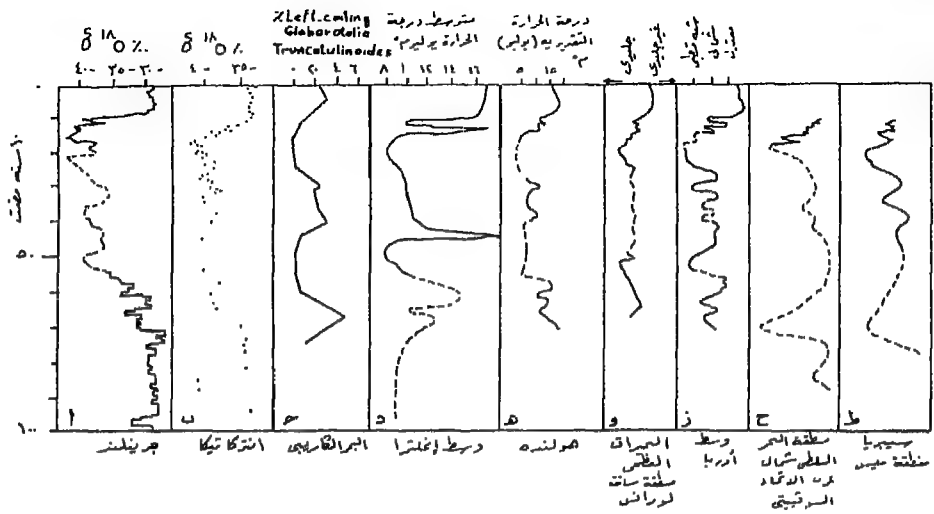 δ ¹⁸O ٪.
٤٠- ٣٥- ٣٠-
δ ¹⁸O ٪.
٤٠- ٣٥-
% Left-coiling
Globorotalia
Truncatulinoides
٠ ٢٠ ٤ ٦
متوسط درجة
الحرارة يوليو م°
٨ ١ ١٢ ١٤ ١٦
درجة الحرارة
التقديرية (يوليو)
م°
٥ ١٥
جليدى
غير جليدى
شمالى
٠
٥٠
١٠٠
أ
ب
ج
د
هـ
و
ز
ح
ط
جرينلند
انتركاتيكا
البحر الكاريبى
وسط إنجلترا
هولنده
البحيرات
العظمى
منطقة سانت
لورانس
وسط
أوربا
منطقة البحر
البلطى شمال
غرب الاتحاد
السوفييتى
سيبيريا